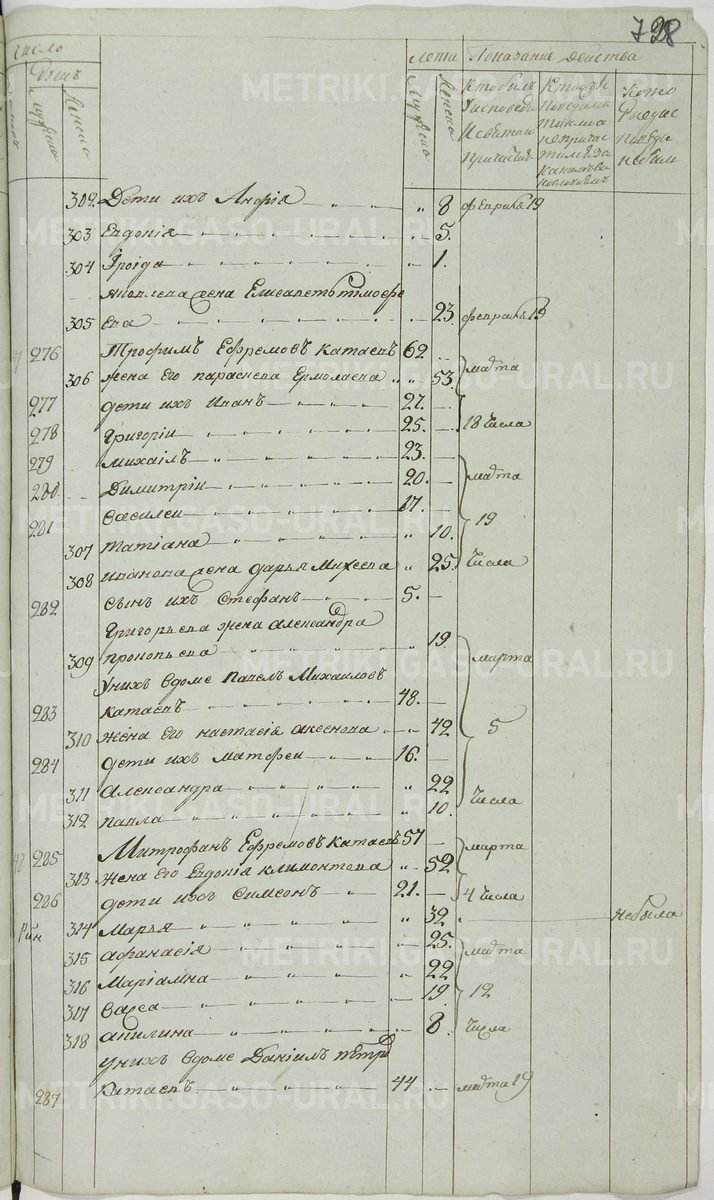 728
число
Лета Показание действа
душъ
Мужеска
Женска
Мужеска
Женска
Кто былъ у исповеди и святаго причастия
302 Дети ихъ Анфiя " 8 февраля 19
303 Евдокiя " 5.
304 Iроiда " 1.
Яковлева жена Елисаветъ тимофе
305 ева 23 февраля 13
276 Трофимъ Ефремовъ Катаевъ 62.
306 жена его параскева Ермолаева " 53. марта
277 дети ихъ Иванъ 27.
278 григорiи 25. 18 числа
279 михаилъ 23.
280 Димитрiи 20. марта
281 василеи 17. 19
307 татiана " 10.
308 иванова жена дарья Михеева " 25. числа
282 сынъ ихъ Стефанъ 5.
григорьева жена александра
309 прокопьева " 19 марта
у нихъ вдоме Павелъ Михаиловъ
283 катаевъ 48.
310 жена его настасiя аксенова " 42 5
284 дети ихъ матфеи 16.
311 александра " 22
312 павла " 10. числа
48 285 Митрофанъ Ефремовъ Катаевъ 57 марта
313 жена его Евдокiя климонтова " 52
286 дети ихъ Симеонъ 21. 4 числа
314 Марья " 32 небыла
315 афанасiя " 25. марта
316 Марiамна " 22
317 васса " 19 12
318 акилина " 8. числа
у нихъ вдоме Данiилъ петро
287 Катаевъ 44 марта 19
METRIKI.GASO-URAL.RU